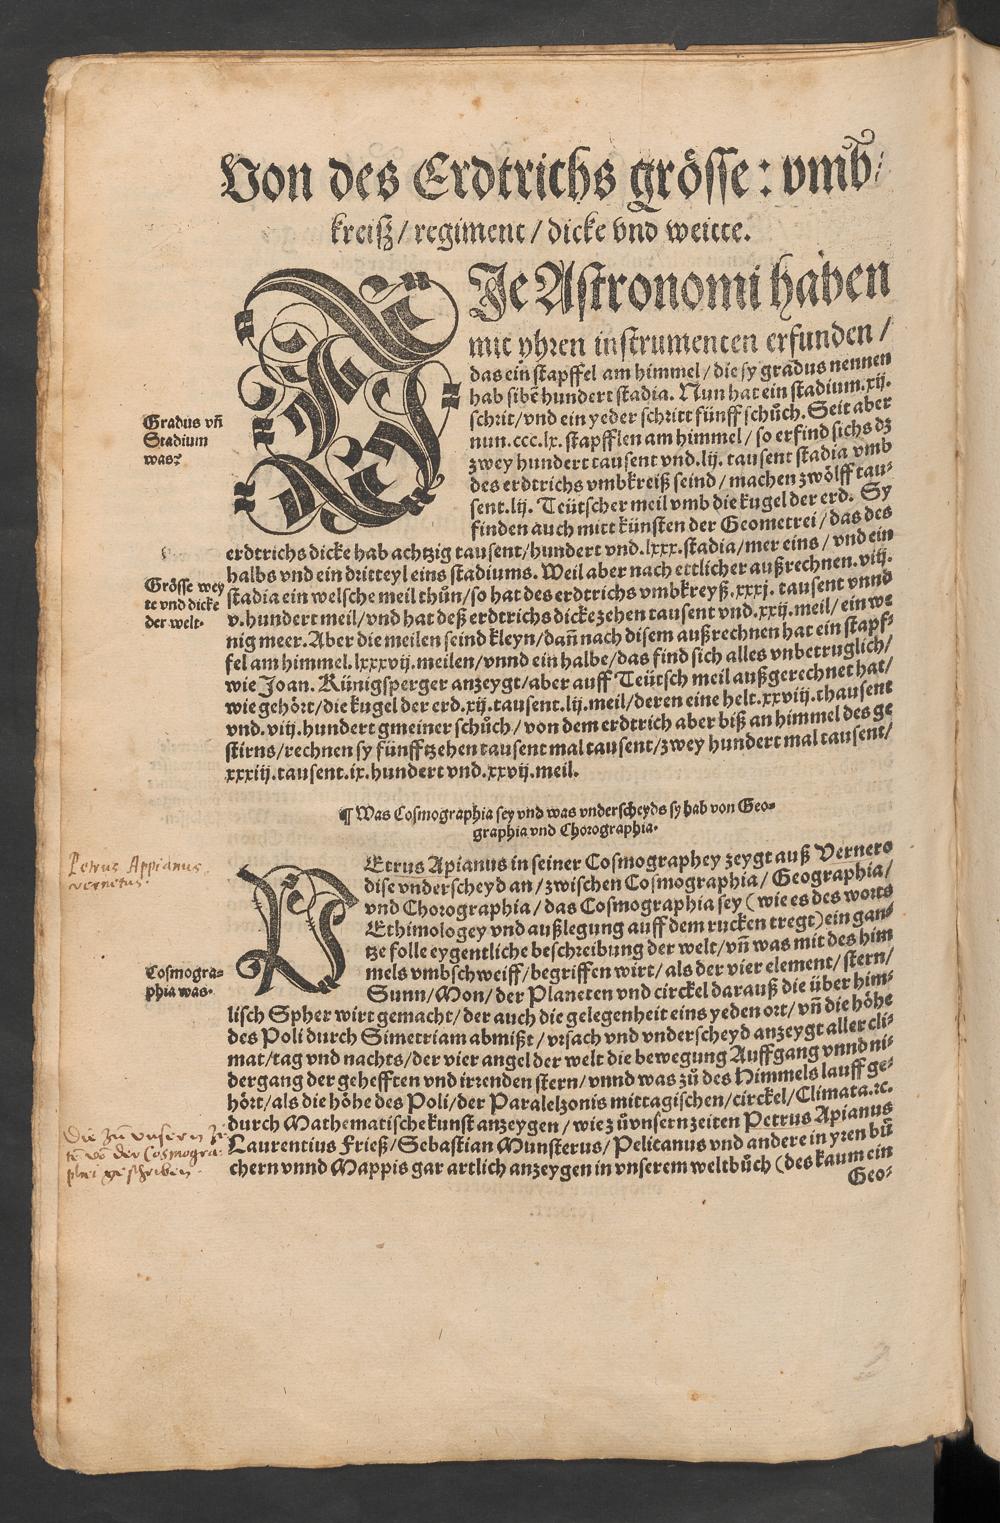 Von des Erdtrichs grösse: vmb⸗
kreisz/ regiment/ dicke vnd weitte.
DJe Astronomi haben
mit yhren instrumenten erfunden/
das ein stapffel am himmel/ die sy gradus nennen
hab sibē hundert stadia. Nun hat ein stadium.xij.
schrit/ vnd ein yeder schritt fünff schůch. Seit aber
nun.ccc.lx. stapfflen am himmel/ so erfind sichs dz
zwey hundert tausent vnd.lij. tausent stadia vmb
des erdtrichs vmbkreiß seind/ machen zwölff tau⸗
sent.lij. Teütscher meil vmb die kugel der erd. Sy
finden auch mitt künsten der Geometrei/ das des
erdtrichs dicke hab achtzig tausent/hundert vnd.lxxx.stadia/mer eins/ vnd ein
halbs vnd ein dritteyl eins stadiums. Weil aber nach ettlicher außrechnen.viij.
stadia ein welsche meil thůn/so hat des erdtrichs vmbkreyß.xxxj. tausent vnnd
v.hundert meil/vnd hat deß erdtrichs dicke zehen tausent vnd.xxij.meil/ ein we
nig meer. Aber die meilen seind kleyn/dañ nach disem außrechnen hat ein stapf⸗
fel am himmel.lxxxvij.meilen/vnnd ein halbe/das find sich alles vnbetruglich/
wie Joan. Künigsperger anzeygt/aber auff Teütsch meil außgerechnet hat/
wie gehört/die kugel der erd.xij.tausent.lij.meil/deren eine helt.xxviij.thausent
vnd.viij.hundert gmeiner schůch/ von dem erdtrich aber biß an himmel des ge
stirns/rechnen sy fünfftzehen tausent mal tausent/zwey hundert mal tausent/
xxxiij.tausent.ix.hundert vnd.xxvij.meil.
Gradus vñ
Stadium
was?
Grösse wey
te vnd dicke
der welt.
¶ Was Cosmographia sey vnd was vnderscheyds sy hab von Geo⸗
graphia vnd Chorographia.
PEtrus Apianus in seiner Cosmographey zeygt auß Vernero
dise vnderscheyd an/ zwischen Cosmographia/ Geographia/
vnd Chorographia/ das Cosmographia sey (wie es des worts
Ethimologey vnd außlegung auff dem rucken tregt) ein gan⸗
tze folle eygentliche beschreibung der welt/ vñ was mit des him
mels vmbschweiff/ begriffen wirt/ als der vier element/ stern/
Sunn/ Mon/ der Planeten vnd circkel darauß die über him⸗
lisch Spher wirt gemacht/ der auch die gelegenheit eins yeden ort/ vñ die höhe
des Poli durch Simetriam abmißt/ vrsach vnd vnderscheyd anzeygt aller cli⸗
mat/tag vnd nachts/der vier angel der welt die bewegung Auffgang vnnd ni⸗
dergang der gehefften vnd irrenden stern/ vnnd was zů des Himmels lauff ge⸗
hört/als die höhe des Poli/der Paralelzonis mittagischen/circkel/Climata.ꝛc.
durch Mathematische kunst anzeygen/ wie zů vnsern zeiten Petrus Apianus
Laurentius Frieß/Sebastian Munsterus/ Pelicanus vnd andere in yren bů
chern vnnd Mappis gar artlich anzeygen in vnserem weltbůch (des kaum ein
Geo⸗
Petrus Appianus.
vernerus.
Cosmogra⸗
phia was.
Die zů vnsern zi
tē vō der Cosmogra
phei geschriben.